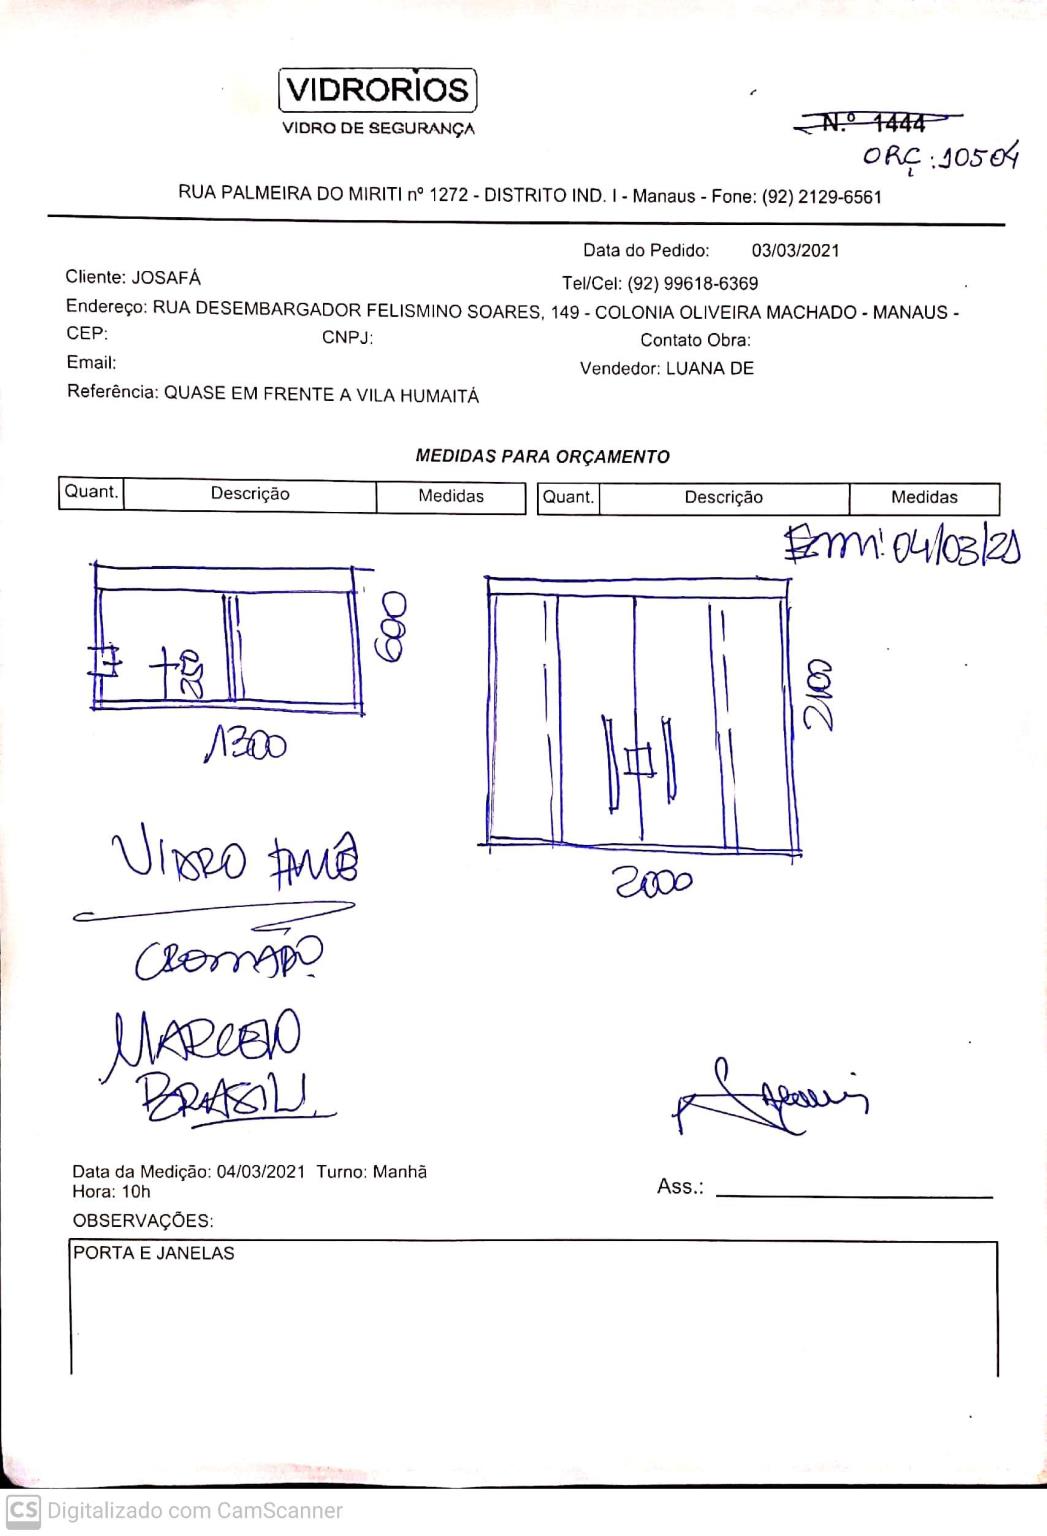 VIDRORIOS
VIDRO DE SEGURANÇA
N.º 1444
ORÇ: 10504
RUA PALMEIRA DO MIRITI nº 1272 - DISTRITO IND. I - Manaus - Fone: (92) 2129-6561
Data do Pedido: 03/03/2021
Cliente: JOSAFÁ
Tel/Cel: (92) 99618-6369
Endereço: RUA DESEMBARGADOR FELISMINO SOARES, 149 - COLONIA OLIVEIRA MACHADO - MANAUS -
CEP: CNPJ: Contato Obra:
Email:
Vendedor: LUANA DE
Referência: QUASE EM FRENTE A VILA HUMAITÁ
MEDIDAS PARA ORÇAMENTO
Quant. Descrição Medidas Quant. Descrição Medidas
04/03/21
600
250
1300
2100
2000
VIDRO
CROMADO
MARCELO
BRASIL
Data da Medição: 04/03/2021 Turno: Manhã
Hora: 10h
Ass.:
OBSERVAÇÕES:
PORTA E JANELAS
CS Digitalizado com CamScanner